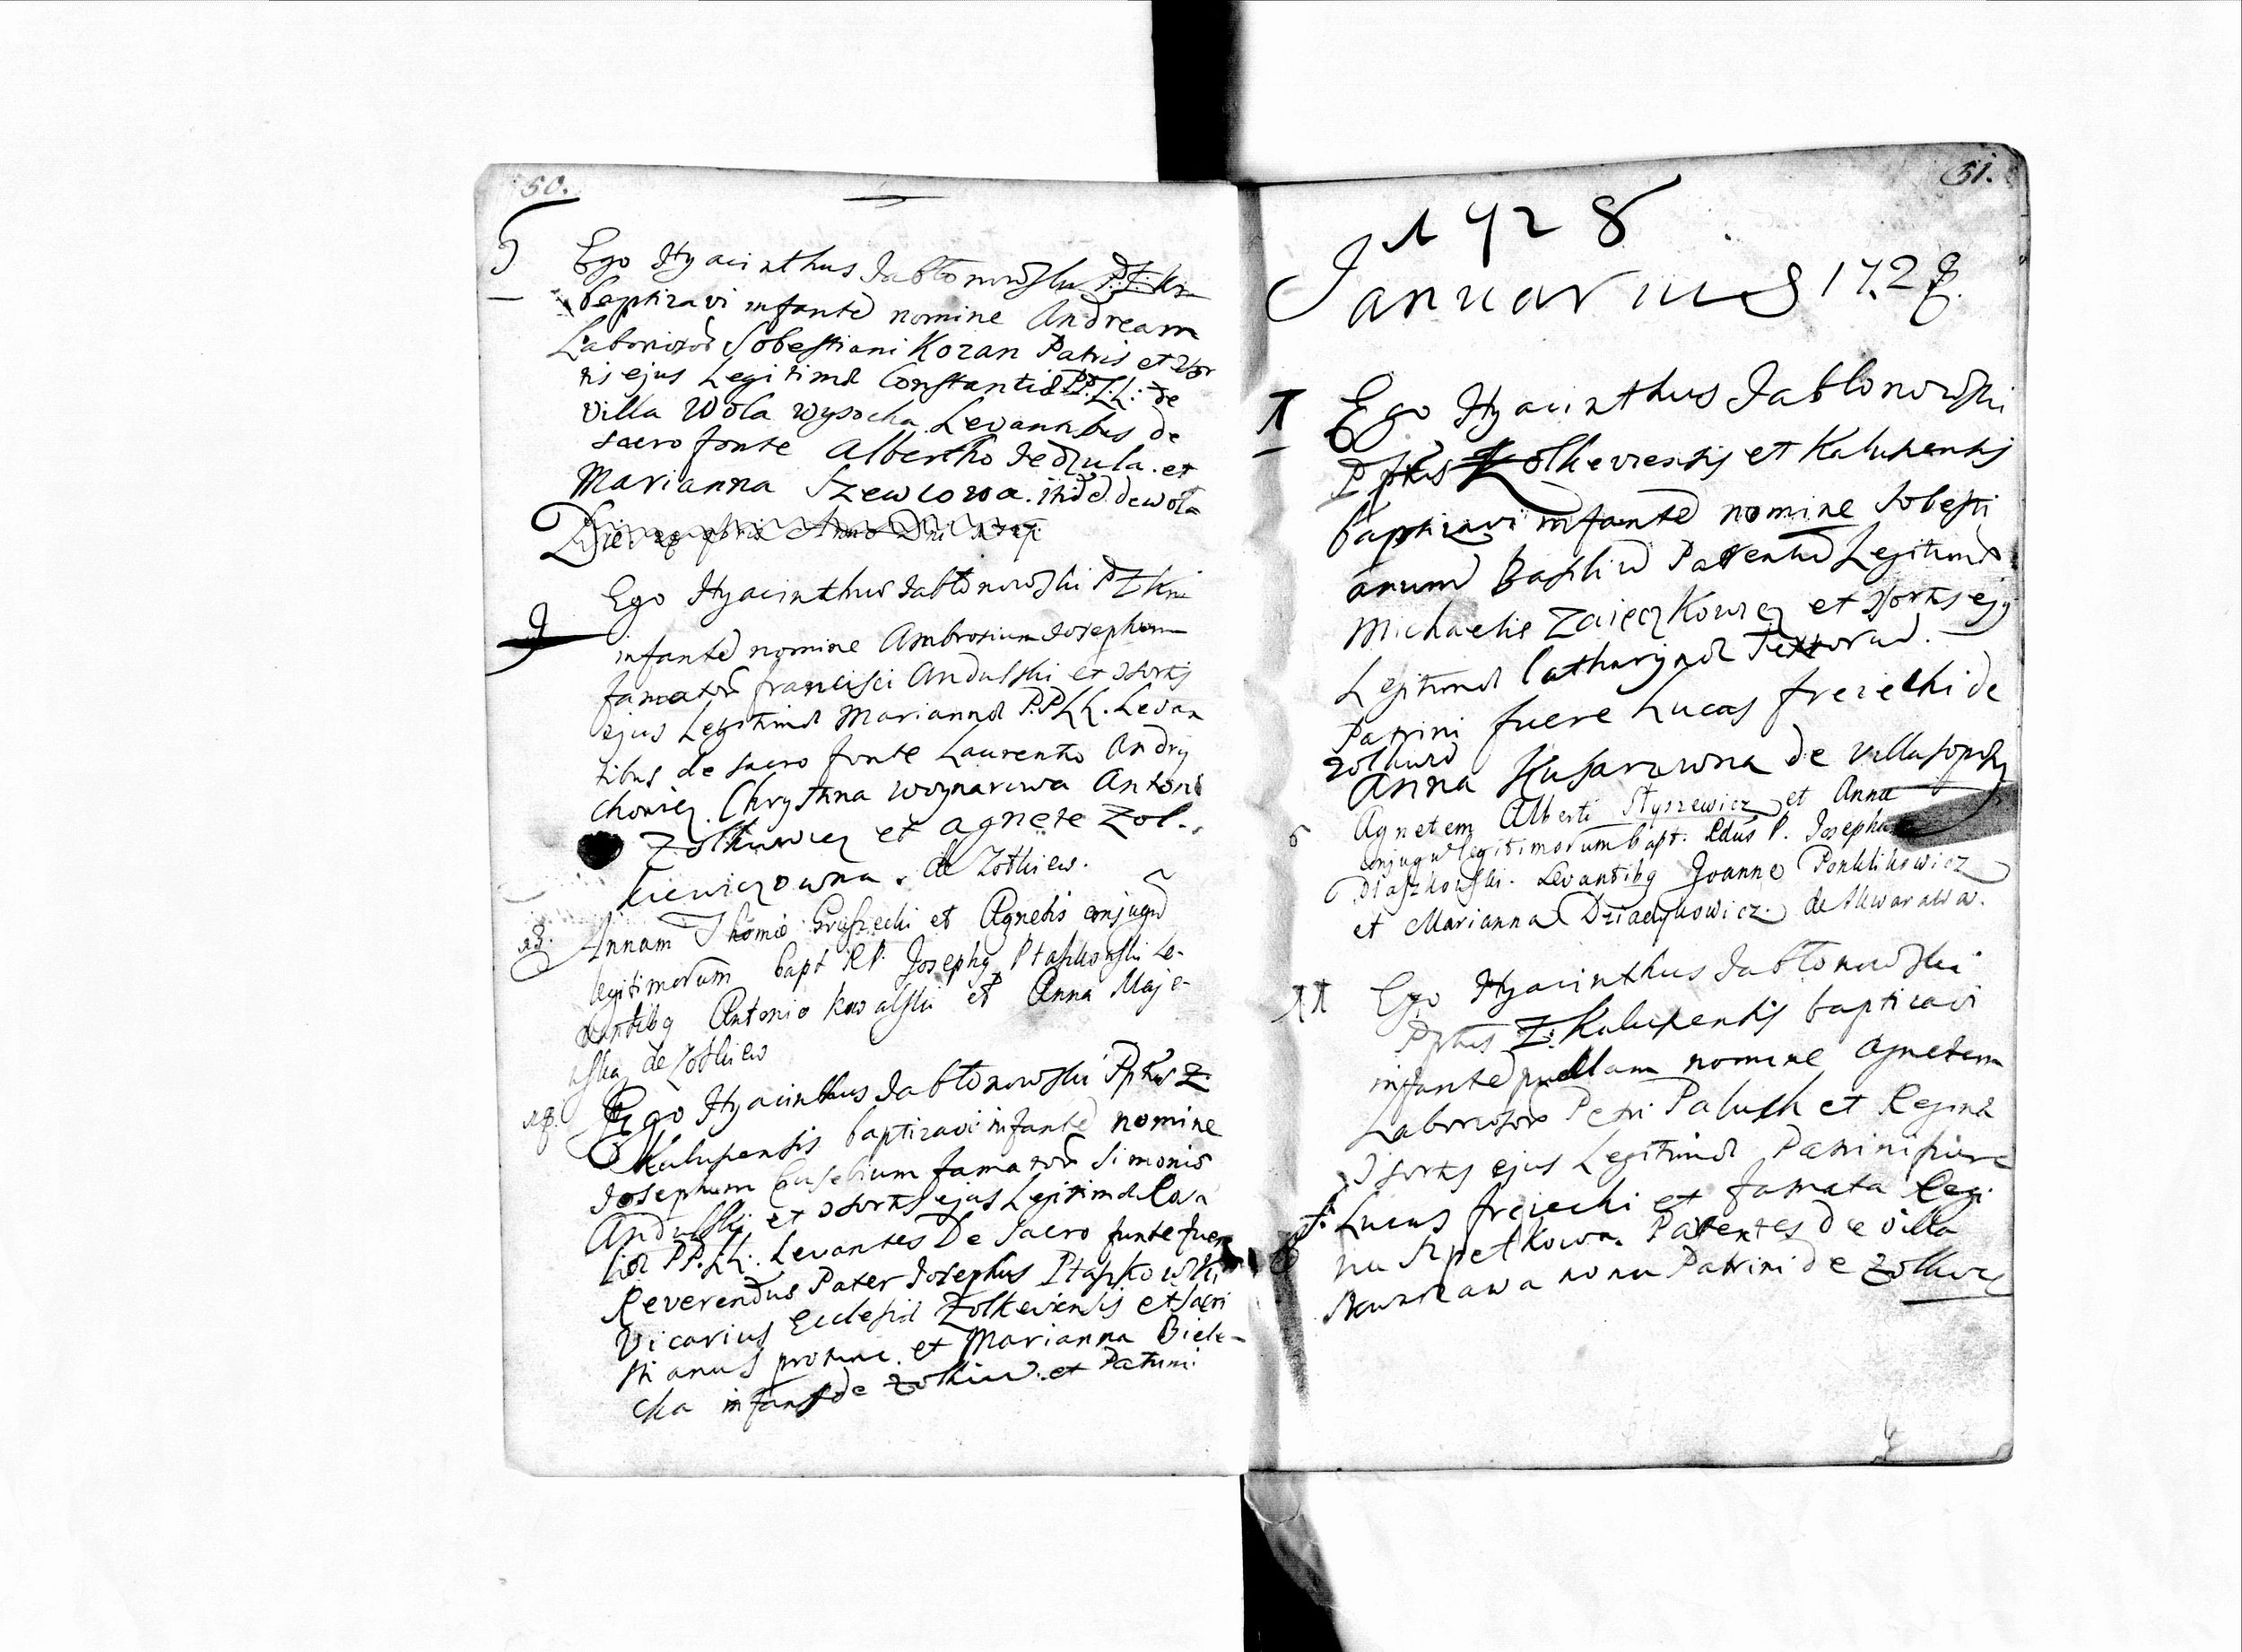 50.
5
Ego Hyacinthus Jabłonowski P. Z. K.
baptizavi infante nomine Andream
Laborioso Sobestiani Kozan Patris et Uxo
ris ejus Legitima Constantia PP. LL. de
villa Wola wysocka Levantibus de
sacro fonte Albertho Jedzula. et
Marianna Szewcowa. itide. de wola
Die
9
Ego Hyacinthus Jabłonowski P Z
infante nomine Ambrosium Josephum
famator francisci Andulski et Uxoris
ejus Legitima Marianna P.P LL. Levan
tibus de sacro fonte Laurentio Andry
chowicz. Chrystina woynarowa Antoni
Zolkiewicz et agnete Zol.
kiewiczowna. de Zolkiew.
18.
Annam Thomæ Gruszecki et Agnetis conjugu
legitimorum bapt RP. Josephq Ptaszkowski Le-
vantibq Antonio Kowalski et Anna Maje-
wska de Zolkiew
Ego Hyacinthus Jabłonowski Pptus Z.
Kulupensis baptizavi infante nomine
Josephum Eusebium famator Simonis
Andulski et Uxoris ejus Legitima Rosa
lia PP. LL. Levantes De Sacro funte fuere
Reverendus Pater Josephus Ptaszkowski
Vicarius Ecclesia Zolkieviensis et Sacri
stianus pro tunc. et Marianna Biele-
cka infans de Zolkiew. et Patrini
51.
1728
Januarius 1728.
1
Ego Hyacinthus Jabłonowski
Pptus Zolkeviensis et Kulupensis
baptizavi infante nomine Sobesti
anum Basiliu Parentu Legitimo
Michaelis Zaięczkowicz et Uxoris ejq
Legitima Catharyna Textoru.
Patrini fuere Lucas freiecki de
zolkiew
Anna Husarzowna de villa
6
Agnetem Alberti Styszewicz et Annæ
conjugu legitimorum bapt. Rdus P. Josephus
Ptaszkowski. Levantibq Joanne Penklikowicz
et Marianna Dziadykowicz. de Skwarawa.
11
Ego Hyacinthus Jabłonowski
Pptus Z: Kulupensis baptizavi
infante puellam nomine Agnetem
Laborioso Petri Paluch et Regina
Uxoris ejus Legitima Patrini fuere
Lucas freiecki et famata Regi
na Szpetkowa. Parentes de villa
Skwarzawa nona Patrini de Zolkiew